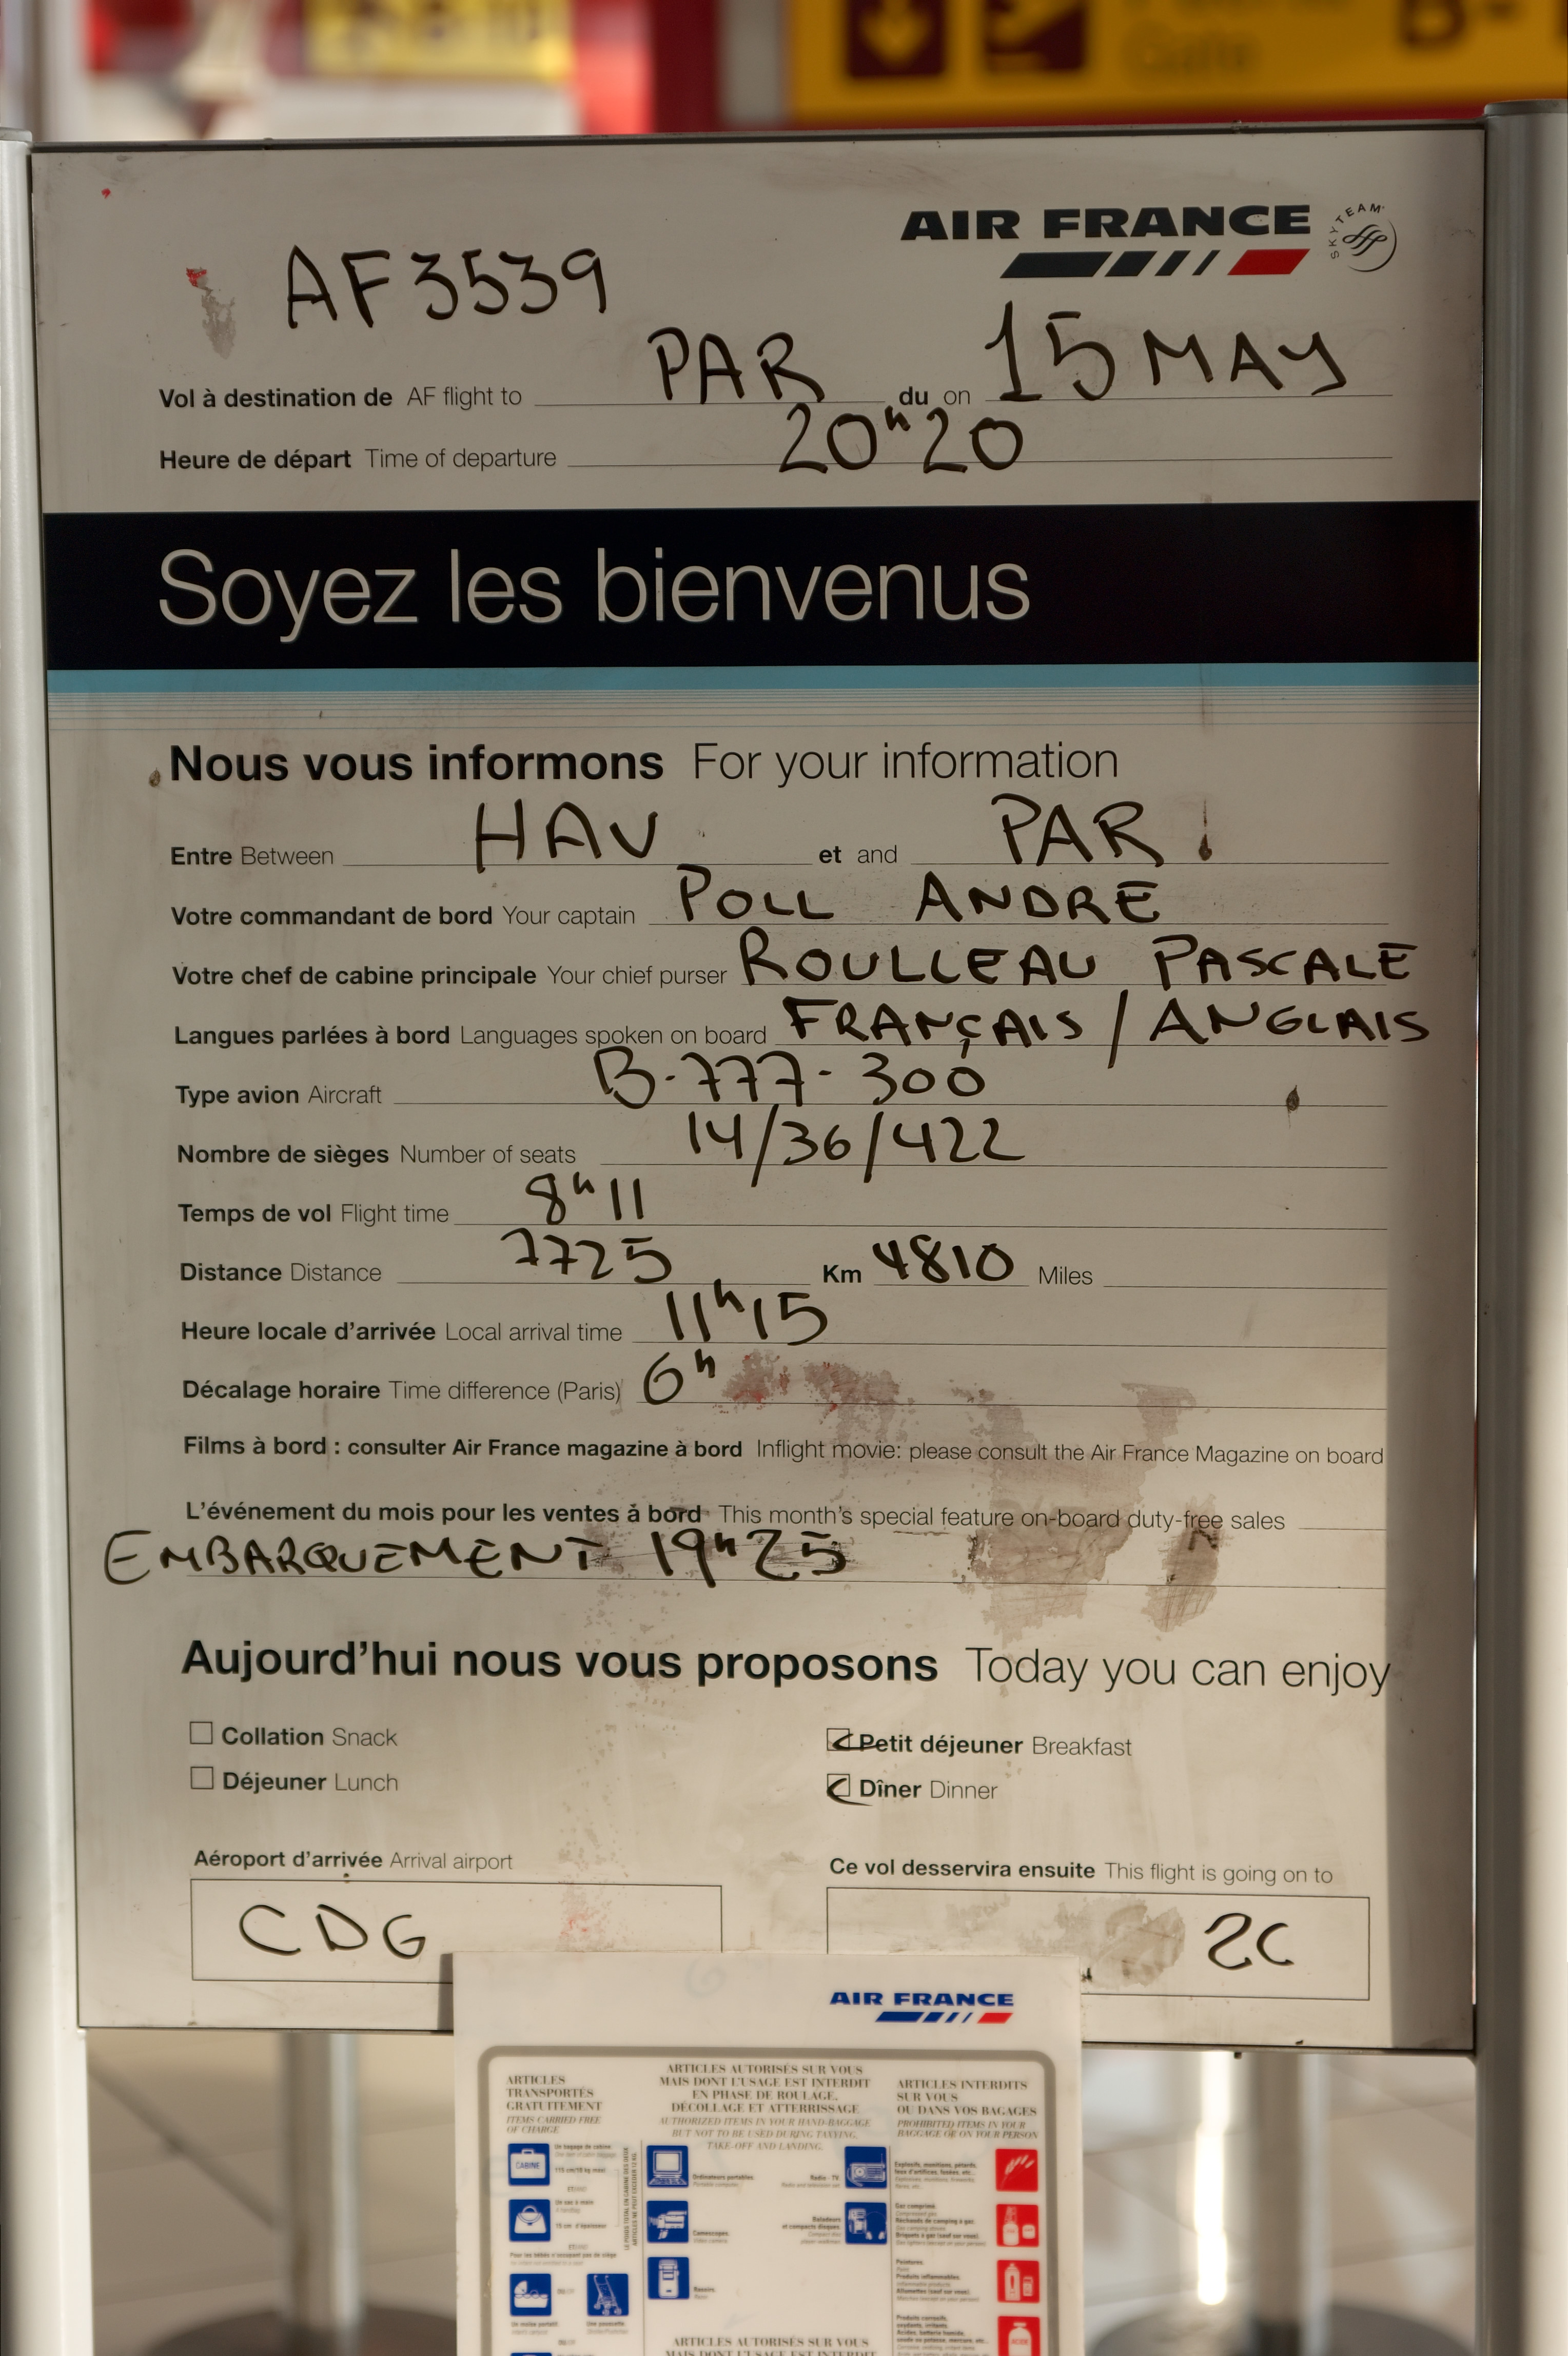 Gate
B-
AIR FRANCE
SKYTEAM
AF3539
Vol à destination de AF flight to PAR du on 15 MAY
Heure de départ Time of departure 20h20
Soyez les bienvenus
Nous vous informons For your information
Entre Between HAV et and PAR
Votre commandant de bord Your captain POLL ANDRE
Votre chef de cabine principale Your chief purser ROULLEAU PASCALE
Langues parlées à bord Languages spoken on board FRANÇAIS / ANGLAIS
Type avion Aircraft B-777-300
Nombre de sièges Number of seats 14/36/422
Temps de vol Flight time 8h11
Distance Distance 7725 Km 4810 Miles
Heure locale d'arrivée Local arrival time 11h15
Décalage horaire Time difference (Paris) 6h
Films à bord : consulter Air France magazine à bord Inflight movie: please consult the Air France Magazine on board
L'événement du mois pour les ventes à bord This month's special feature on-board duty-free sales
EMBARQUEMENT 19h25
Aujourd'hui nous vous proposons Today you can enjoy
Collation Snack
Petit déjeuner Breakfast
Déjeuner Lunch
Dîner Dinner
Aéroport d'arrivée Arrival airport
Ce vol desservira ensuite This flight is going on to
CDG
2C
AIR FRANCE
ARTICLES
TRANSPORTÉS
GRATUITEMENT
ITEMS CARRIED FREE
OF CHARGE
CABINE
Un bagage de cabine
Un sac à main
ARTICLES AUTORISÉS SUR VOUS
MAIS DONT L'USAGE EST INTERDIT
EN PHASE DE ROULAGE,
DÉCOLLAGE ET ATTERRISSAGE
AUTHORIZED ITEMS IN YOUR HAND-BAGGAGE
BUT NOT TO BE USED DURING TAXYING,
TAKE-OFF AND LANDING.
Ordinateurs portables.
Radio - TV
Camescopes.
Baladeurs
et compacts disques.
Rasoirs.
ARTICLES AUTORISÉS SUR VOUS
MAIS DONT L'USAGE EST INTERDIT
ARTICLES INTERDITS
SUR VOUS
OU DANS VOS BAGAGES
PROHIBITED ITEMS IN YOUR
BAGGAGE OR ON YOUR PERSON
Explosifs, munitions, pétards,
feux d'artifices, fusées, etc...
Gaz comprimé.
Réchauds de camping à gaz.
Briquets à gaz (sauf sur vous)
Peintures.
Produits inflammables.
Allumettes (sauf sur vous)
Produits corrosifs,
ACIDE